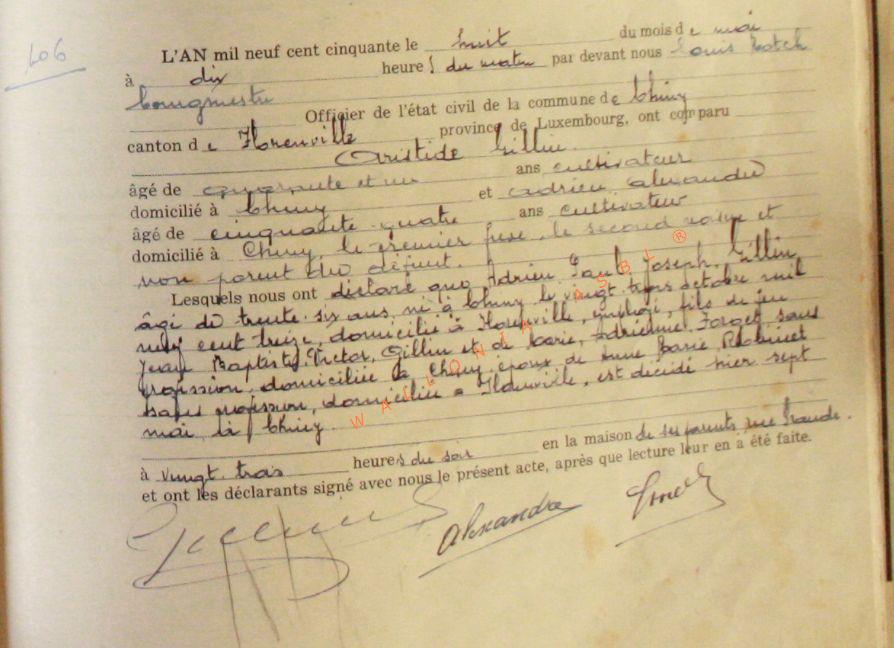 106
L'AN mil neuf cent cinquante le huit du mois de mai
à dix heures du matin par devant nous Louis
bourgmestre
Officier de l'état civil de la commune de Chiny
canton de Florenville province de Luxembourg, ont comparu
Aristide Gillin
âgé de quarante et un ans cultivateur
domicilié à Chiny et Adrien Alexandre
âgé de cinquante quatre ans cultivateur
domicilié à Chiny, le premier frère, le second voisin et
non parent du défunt.
Lesquels nous ont déclaré que Adrien Paul Joseph Gillin
âgé de trente-six ans, né à Chiny le vingt-trois octobre mil
neuf cent treize, domicilié à Florenville, employé, fils de feu
Jean Baptiste Victor Gillin et de Marie Adrienne Forget, sans
profession, domiciliée à Chiny, époux de Anne Marie
sans profession, domiciliée à Florenville, est décédé hier sept
mai à Chiny.
à vingt trois heures du soir en la maison de ses parents, rue Grande.
et ont les déclarants signé avec nous le présent acte, après que lecture leur en a été faite.
Alexandre
WALLONIA ASBL ®